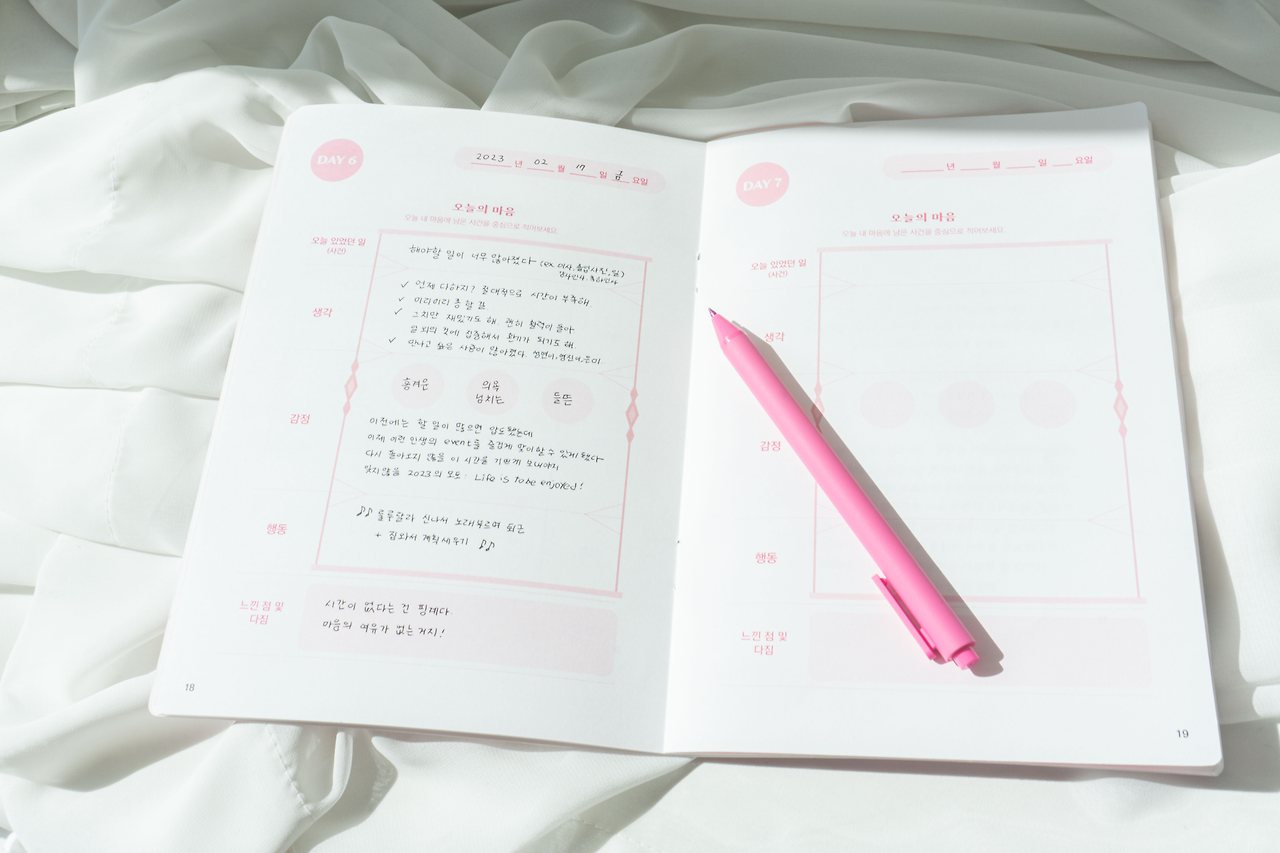 DAY 6
2023 년 02 월 17 일 금 요일
오늘의 마음
오늘 내 마음에 남은 사건을 중심으로 적어보세요.
오늘 있었던 일
(사건)
해야할 일이 너무 많아졌다 (ex. 이사, 졸업사진, 일)
생각
✓ 언제 다하지? 절대적으로 시간이 부족해.
✓ 미리미리 좀 할 걸
✓ 그치만 재밌기도 해. 괜히 활력이 돌아
일 외의 것에 집중해서 환기가 되기도 해.
✓ 만나고 싶은 사람이 많아졌다.
흥겨운
의욕
넘치는
들뜬
감정
이전에는 할 일이 많으면 압도됐는데
이제 이런 인생의 event를 즐겁게 맞이할 수 있게 됐다
다시 돌아오지 않을 이 시간을 기쁘게 보내야지
잊지않을 2023의 모토 : Life is to be enjoyed!
행동
♪♪ 룰루랄라 신나서 노래부르며 퇴근
+ 집와서 계획세우기 ♪♪
느낀 점 및
다짐
시간이 없다는 건 핑계다.
마음의 여유가 없는거지!
18
DAY 7
년 월 일 요일
오늘의 마음
오늘 내 마음에 남은 사건을 중심으로 적어보세요.
오늘 있었던 일
(사건)
생각
감정
행동
느낀 점 및
다짐
19